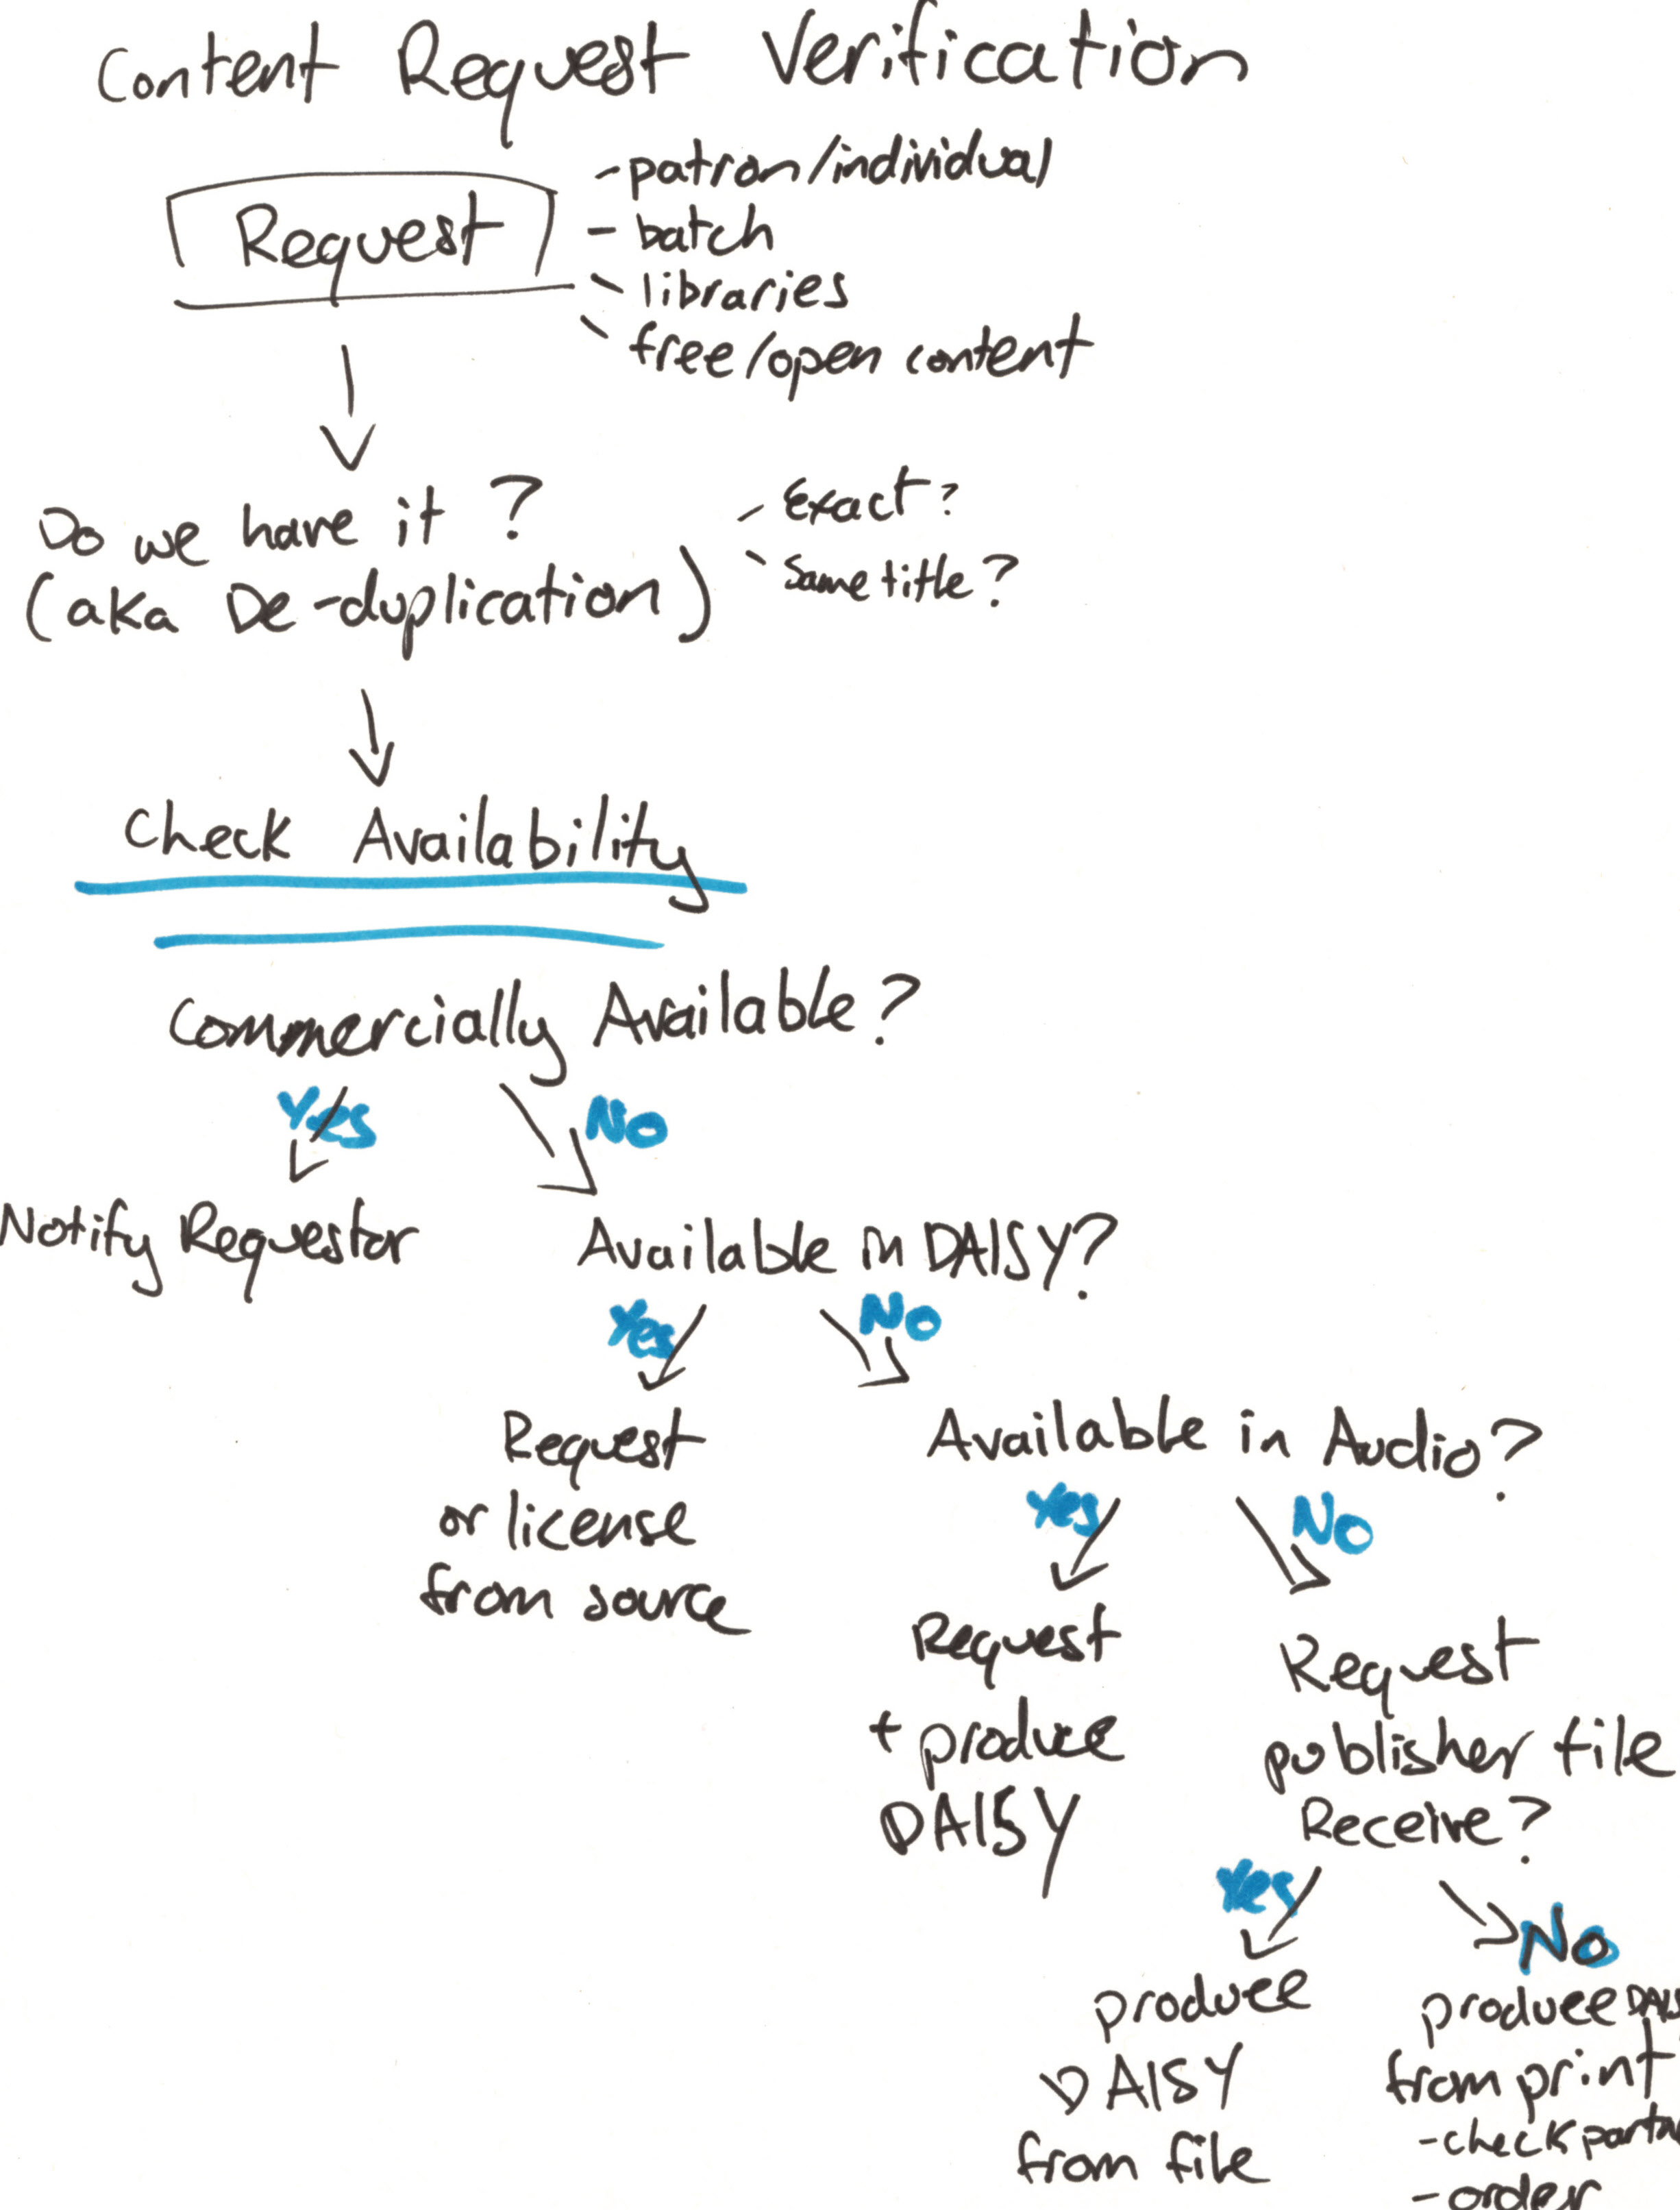 Content Request Verification
Request
- patron/individual
- batch
- libraries
- free/open content
Do we have it?
(aka De-duplication)
- Exact?
- Same title?
Check Availability
Commercially Available?
Yes
No
Notify Requestor
Available in DAISY?
Yes
No
Request
or license
from source
Available in Audio?
Yes
No
Request
+ produce
DAISY
Request
publisher file
Receive?
Yes
No
produce
DAISY
from file
produce
from print
- check
- order